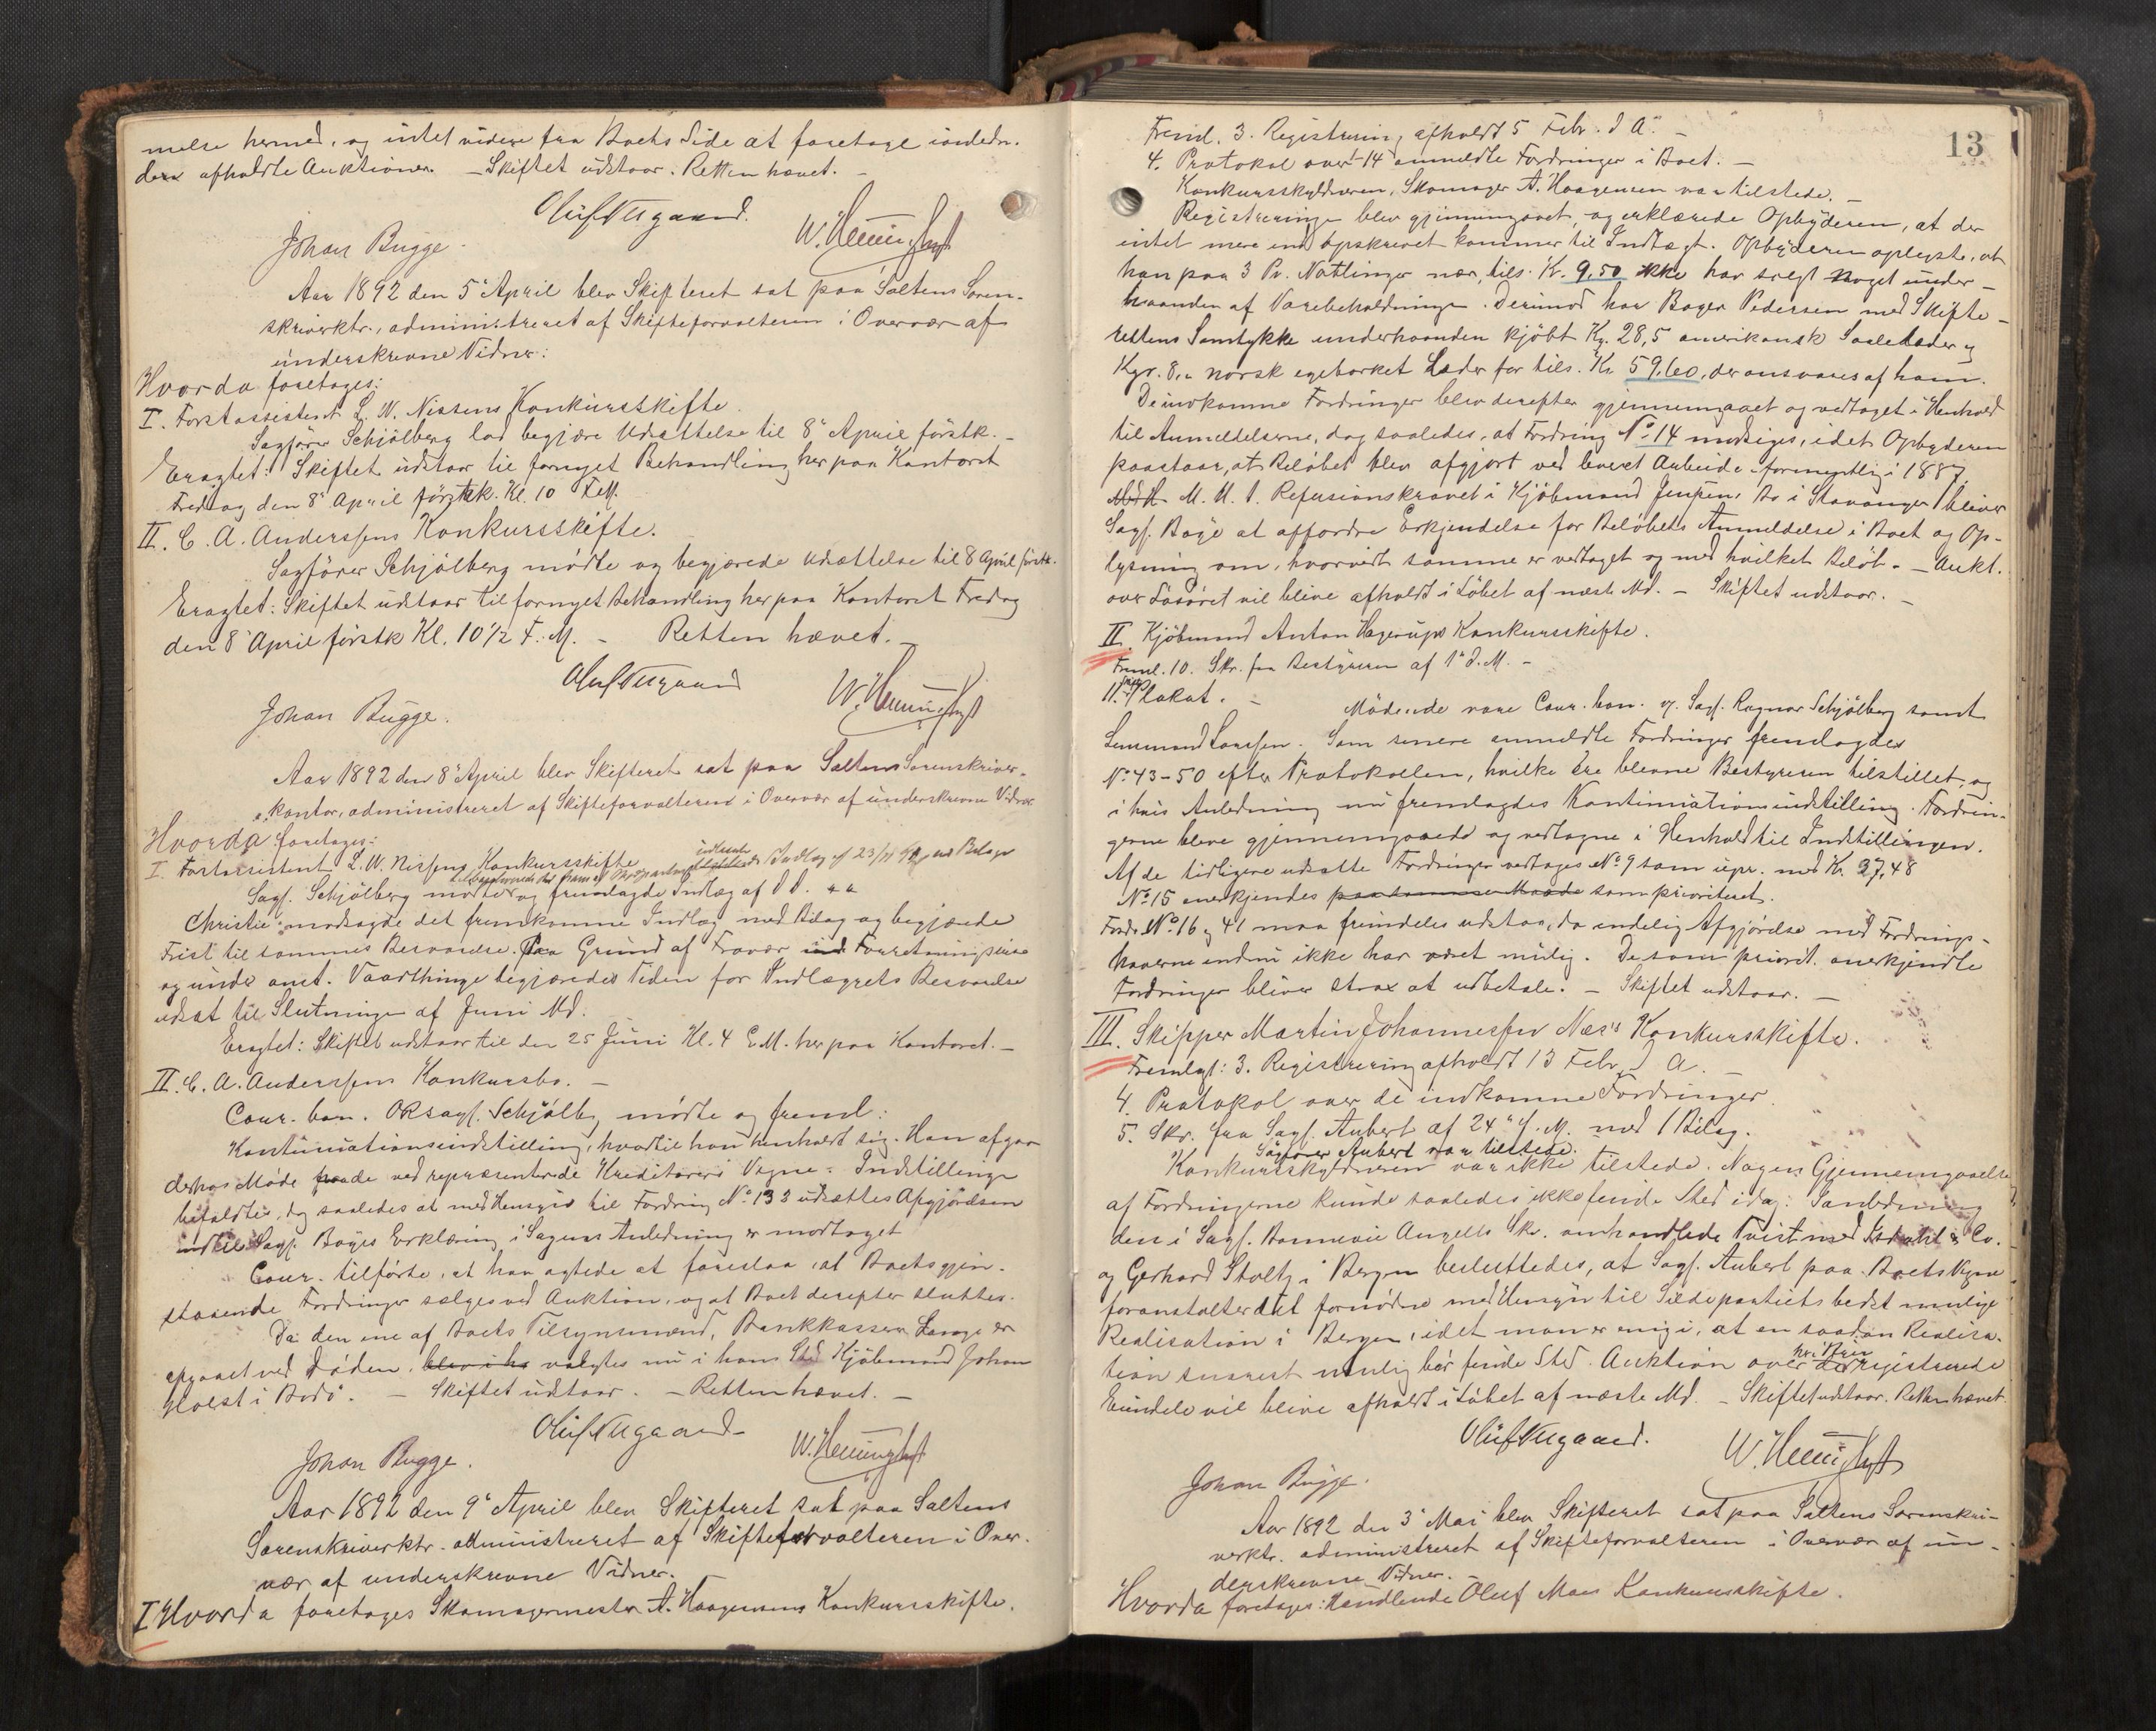 melse hermed, og intet videre fra Boets Side at foretage
dere afholdte Auktioner. – Skiftet udstaar. Retten hævet. –
Johan Bugge.
Aar 1892 den 5' April blev Skifteret sat paa Saltens Soren-
skriverktr., administreret af Skifteforvalteren i Overvær af
underskrevne Vidner:
Hvorda foretages:
I. Forstassistent L. W. Nissens Konkursskifte.
Sagfører Schjølberg lod begjære Udsættelse til 8' April førstk. –
Eragtet: Skiftet udstaar til fornyet Behandling her paa Kontoret
Fredag den 8' April førstk. Kl. 10 FM.
II. C. A. Anderssens Konkursskifte.
Sagfører Schjølberg mødte og begjærede Udsættelse til 8 April førstk.
Eragtet: Skiftet udstaar til fornyet Behandling her paa Kontoret Fredag
den 8' April førstk Kl. 10 1/2 F. M. – Retten hævet. –
Johan Bugge.
Aar 1892 den 8' April blev Skifteret sat paa Saltens Sorenskriver-
kontor, administreret af Skifteforvalteren i Overvær af underskrevne Vidner
Hvorda foretages:
I. Forstassistent L. W. Nissens Konkursskifte
Sagf. Schjølberg mødte og fremlagde Indlæg af D. D.
Christie modsagde det fremkomne Indlæg med Bilag og begjærede
Frist til sammes Besvarelse. Paa Grund af Fravær Forretningsreise
og under anst. Vaarthinge begjæredes Tiden for Indlæggets Besvarelse
udsat til Slutningen af Juni Md.
Eragtet: Skiftet udstaar til den 25 Juni Kl. 4 E.M. her paa Kontoret. –
II. C. A. Anderssens Konkursbo. –
Cour. bon. ORsagf. Schjølbg mødte og freml:
Kontinuationsindstilling, hvortil han henholdt sig. Han afgav
derhos Møde ved repræsenterede Kreditorers Vegne. Indstillingen
befuldtes, dog saaledes at med Hensyn til Fordring No 133 udsættes Afgjørelsen
indtil Sagf. Bøyes Erklæring i Sagens Anledning er modtaget
Cour. tilførte, at han agtede at foreslaa, at Boets gjen-
staaende Fordringer sælges ved Auktion, og at Boet derefter sluttes.
Da den ene af Boets Tilsynsmænd, Bankkasserer Lange er
afgaaet ved Døden, blev i ha valgtes nu i hans Sted Kjøbmand Johan
Holst i Bodø. – Skiftet udstaar. – Retten hævet. –
Johan Bugge.
Aar 1892 den 9' April blev Skifteret sat paa Saltens
Sorenskriverktr. administreret af Skifteforvalteren i Over-
vær af underskrevne Vidner.
I Hvorda foretages Skomagermester A. Haagensens Konkursskifte.
13
Freml. 3. Registrering afholdt 5 Febr. d. A. –
4. Protokol over 14 anmeldte Fordringer i Boet. –
Konkursskyldneren, Skomager A. Haagensen var tilstede. –
Registreringen blev gjennemgaaet, og erklærede Opbyderen, at der
intet mere end opskrevet kommer til Indtægt. Opbyderen oplyste, at
han paa 3 Pr. nær, tils. Kr. 9,50 ikke har solgt noget under-
haanden af Varebeholdningen. Derimod har Bager Pedersen med Skifte-
rettens Samtykke underhaanden kjøbt Kg. 28,5 amerikansk Saalelæder og
Kgr. 8,- norsk egebarket Læder for tils. Kr. 59,60, der ansvares af ham.
De indkomne Fordringer blev derefter gjennemgaaet og vedtaget i Henhold
til Anmeldelserne, dog saaledes, at Fordring No 14 modsiges, idet Opbyderen
paastaar, at Beløbet blev afgjort ved leveret Arbeide formentlig i 1887
M. H. t. Refusionskravet i Kjøbmand Jensens Bo i Stavanger bliver
Sagf. Bøye at affordre Erkjendelse for Beløbets Anmeldelse i Boet og Op-
lysning om, hvorvidt samme er vedtaget og med hvilket Beløb. – Aukt.
over Løsøret vil blive afholdt i Løbet af næste Md. – Skiftet udstaar. –
II. Kjøbmand Anton Hagerups Konkursskifte.
Freml. 10. Skr. fra Bestyreren af 1' d. M. –
11. Plakat. – Mødende vare Cour. bon. og Sagf. Ragnar Schjølberg samt
Lensmand Larssen. Som senere anmeldte Fordringer fremlagdes
No 43-50 efter Protokollen, hvilke ere blevne Bestyreren tilstillet, og
i hvis Anledning nu fremlagdes Kontinuationsindstilling. Fordrin-
gerne bleve gjennemgaaede og vedtagne i Henhold til Indstillingen.
Af de tidligere udsatte Fordringer vedtages No 9 som upr. med Kr. 27,48
No 15 anerkjendes paa samme Maade som prioriteret.
Fordr. No 16 og 41 maa fremdeles udstaa, da endelig Afgjørelse med Fordrings-
haverne endnu ikke har været mulig. De som priorit. anerkjendte
Fordringer bliver strax at udbetale. – Skiftet udstaar. –
III. Skipper Martin Johannessen Næss Konkursskifte.
Fremlagt: 3. Registrering afholdt 13 Febr. d. A. –
4. Protokol over de indkomne Fordringer.
5. Skr. fra Sagf. Aubert af 24' f. M. med 1 Bilag.
Sagfører Aubert var tilstede.
Konkursskyldneren var ikke tilstede. Nogen Gjennemgaaelse
af Fordringerne kunde saaledes ikke finde Sted idag. I Anledning
den i Sagf. Bonnevie Angells Skr. omhandlede Tvist med & Co.
og Gerhard Stoltz i Bergen besluttedes, at Sagf. Aubert paa Boets Vegne
foranstalter det fornødne med Hensyn til Sildepartiets bedst mulige
Realisation i Bergen, idet man er enig i, at en saadan Realisa-
tion snarest mulig bør finde Sted. Auktion over registrerede
Eiendele vil blive afholdt i Løbet af næste Md. – Skiftet udstaar. Retten hævet.
Johan Bugge.
Aar 1892 den 3' Mai blev Skifteret sat paa Saltens Sorenskri-
verktr. administreret af Skifteforvalteren i Overvær af un-
derskrevne Vidner.
Hvorda foretages: Handlende Oluf Moes Konkursskifte.